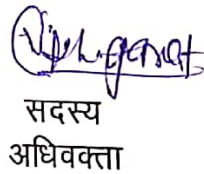 सदस्य
अधिवक्ता